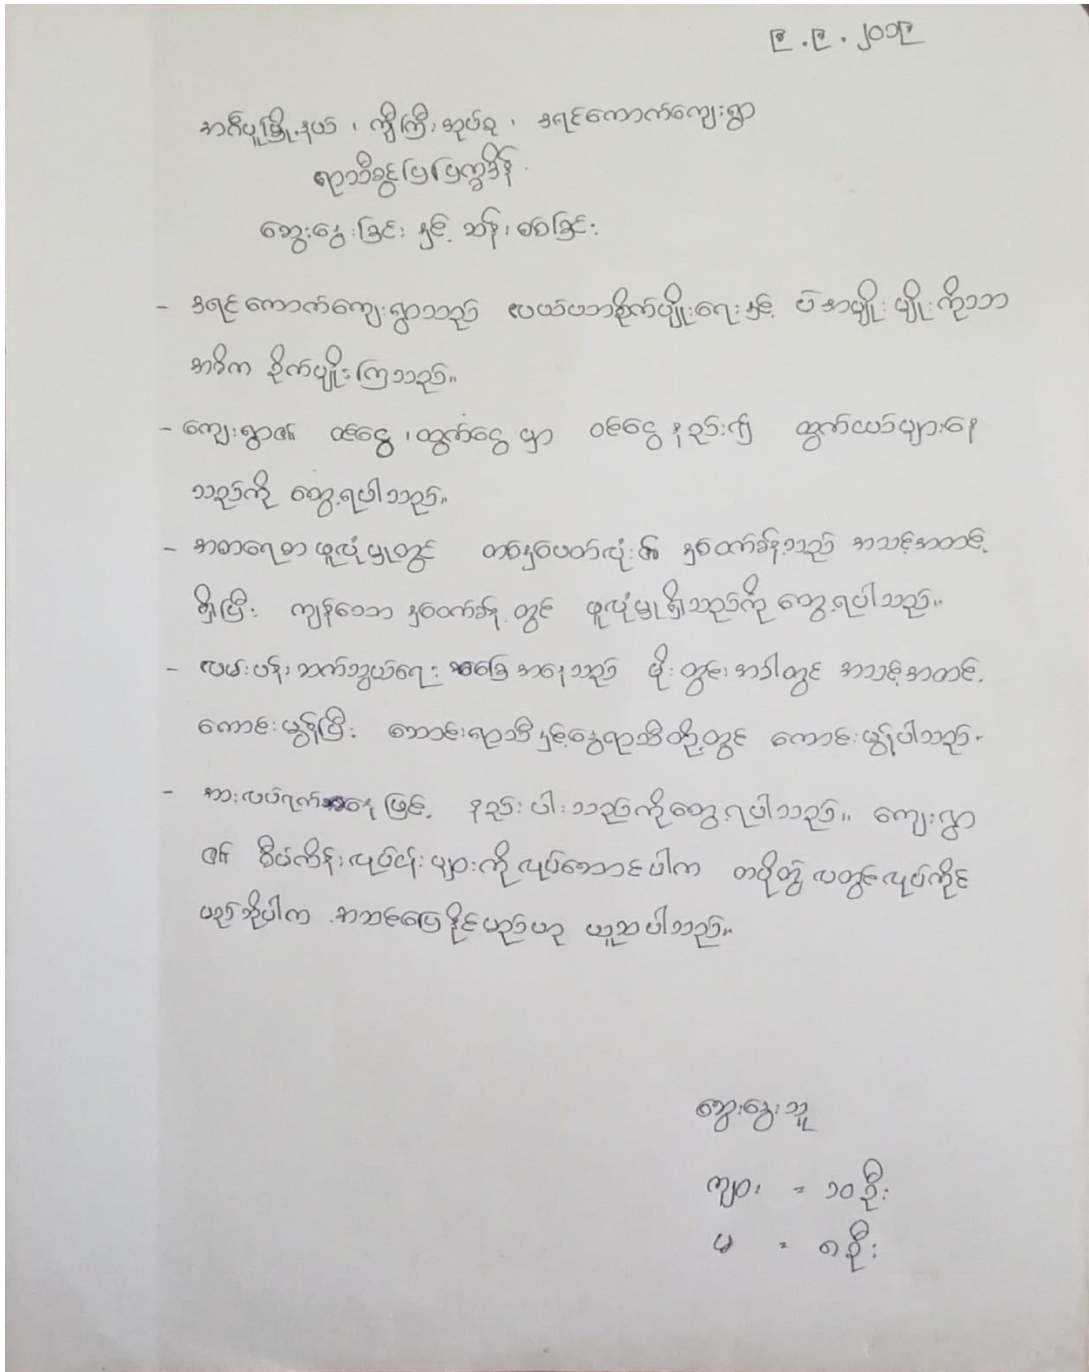 ၉.၉.၂၀၁၉
အင်္ဂပူမြို့နယ် ၊ ကျီကြီးအုပ်စု ၊ ခရင်ကောက်ကျေးရွာ
ရာသီခွင်ပြပြက္ခဒိန်
ဆွေးနွေးခြင်း နှင့် ဆန်းစစ်ခြင်း
- ခရင်ကောက်ကျေးရွာသည် လယ်ယာစိုက်ပျိုးရေးနှင့် ပဲအမျိုးမျိုးကိုသာ
အဓိက စိုက်ပျိုးကြသည်။
- ကျေးရွာ၏ ဝင်ငွေ ၊ ထွက်ငွေ မှာ ဝင်ငွေ နည်း၍ ထွက်ငွေများနေ
သည်ကို တွေ့ရပါသည်။
- အစာရေစာ ဖူလုံမှုတွင် တစ်နှစ်ပတ်လုံး၏ နှစ်ဝက်ခန့်သည် အသင့်အတင့်
ရှိပြီး ကျန်သော နှစ်ဝက်ခန့် တွင် ဖူလုံမှုရှိသည်ကို တွေ့ရပါသည်။
- လမ်းပန်းဆက်သွယ်ရေး အခြေအနေသည် မိုးတွင်းအခါတွင် အသင့်အတင့်
ကောင်းမွန်ပြီး ဆောင်းရာသီနှင့်နွေရာသီတို့တွင် ကောင်းမွန်ပါသည်။
- အားလပ်ရက်အနေဖြင့် နည်းပါးသည်ကိုတွေ့ရပါသည်။ ကျေးရွာ
၏ စီမံကိန်းလုပ်ငန်းများကို လုပ်ဆောင်ပါက တပို့တွဲလတွင်လုပ်ကိုင်
မည်ဆိုပါက အဆင်ပြေနိုင်မည်ဟု ယူဆပါသည်။
ဆွေးနွေးသူ
ကျား = ၁၀ဦး
မ = ၈ဦး